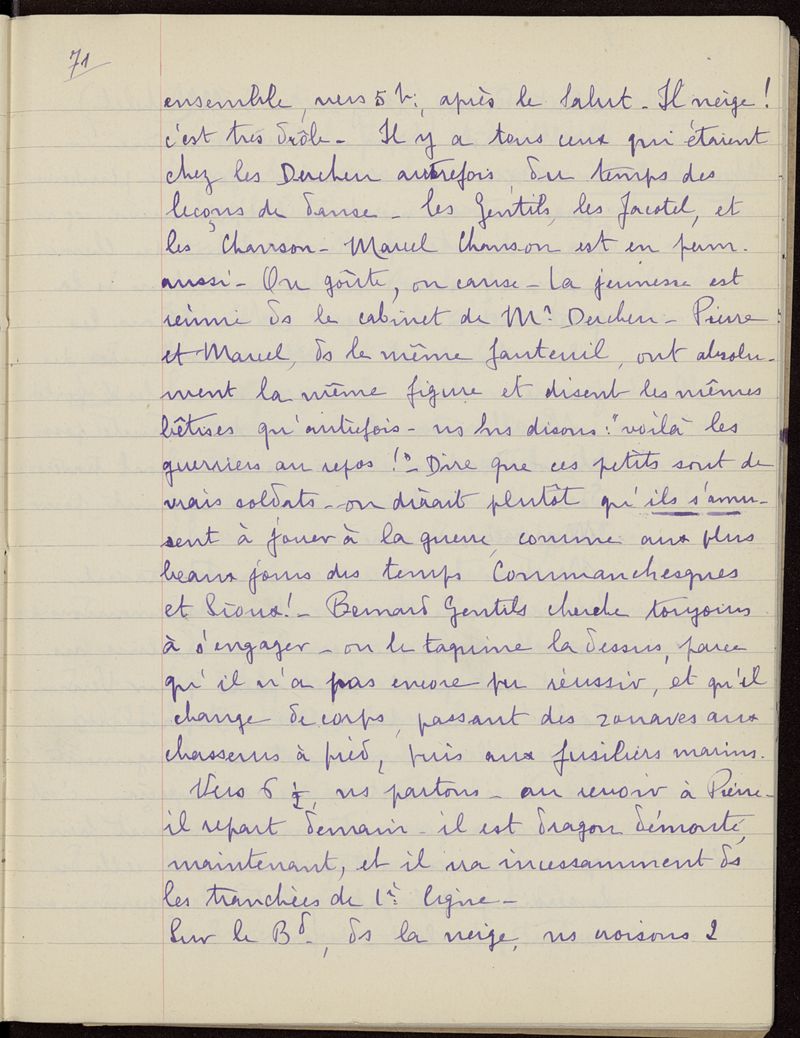 71
ensemble, vers 5 h:, après le Salut - Il neige !
c'est très drôle - Il y a tous ceux qui étaient
chez les Dercheu autrefois, du temps des
leçons de danse - les Gentils, les Jacotel, et
les Chanson - Marcel Chanson est en perm.
aussi - On goûte, on cause - La jeunesse est
réunie ds le cabinet de Mr Dercheu - Pierre
et Marcel, ds le même fauteuil, ont absolu-
ment la même figure et disent les mêmes
bêtises qu'autrefois - ns ns disons : "voilà les
guerriers au repos !" - Dire que ces petits sont de
vrais soldats - on dirait plutôt qu'ils s'amu-
sent à jouer à la guerre, comme aux plus
beaux jours des temps Commanchesques
et Sioux ! - Bernard Gentils cherche toujours
à s'engager - on le taquine la dessus, parce
qu'il n'a pas encore pu réussir, et qu'il
change de corps, passant des zouaves aux
chasseurs à pied, puis aux fusiliers marins.
Vers 6 ½, ns partons - au revoir à Pierre -
il repart demain - il est dragon démonté,
maintenant, et il va incessamment ds
les tranchées de 1è ligne -
Sur le Bd, ds la neige, ns croisons 2